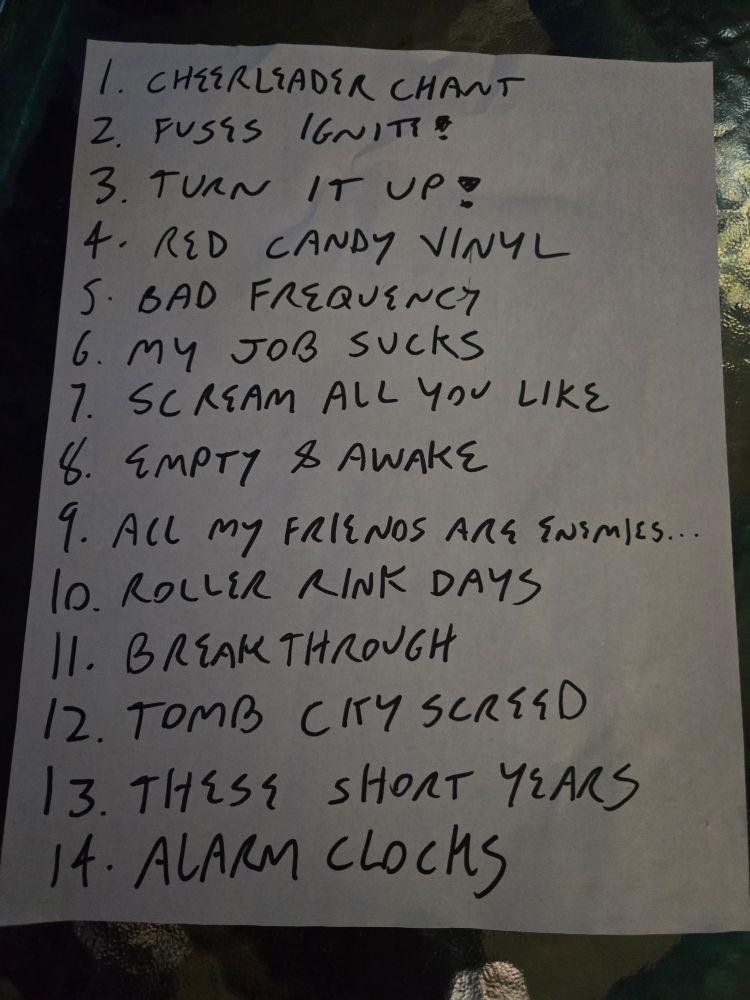 1. CHEERLEADER CHANT
2. FUSES IGNITE!
3. TURN IT UP!
4. RED CANDY VINYL
5. BAD FREQUENCY
6. MY JOB SUCKS
7. SCREAM ALL YOU LIKE
8. EMPTY & AWAKE
9. ALL MY FRIENDS ARE ENEMIES...
10. ROLLER RINK DAYS
11. BREAKTHROUGH
12. TOMB CITY SCREED
13. THESE SHORT YEARS
14. ALARM CLOCKS